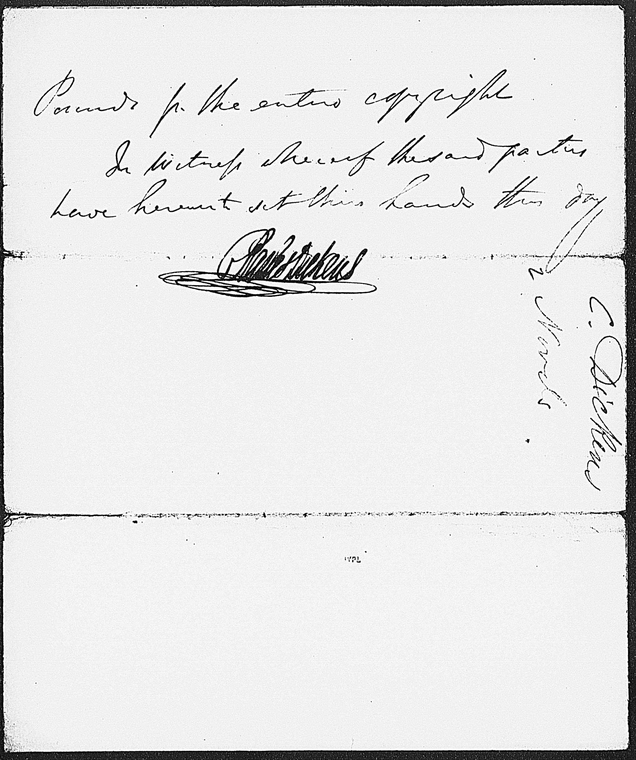 Pounds for the entire copyright
In Witness whereof the said parties
have hereunto set their hands this day
Charles Dickens
C. Dickens
2 Novels.